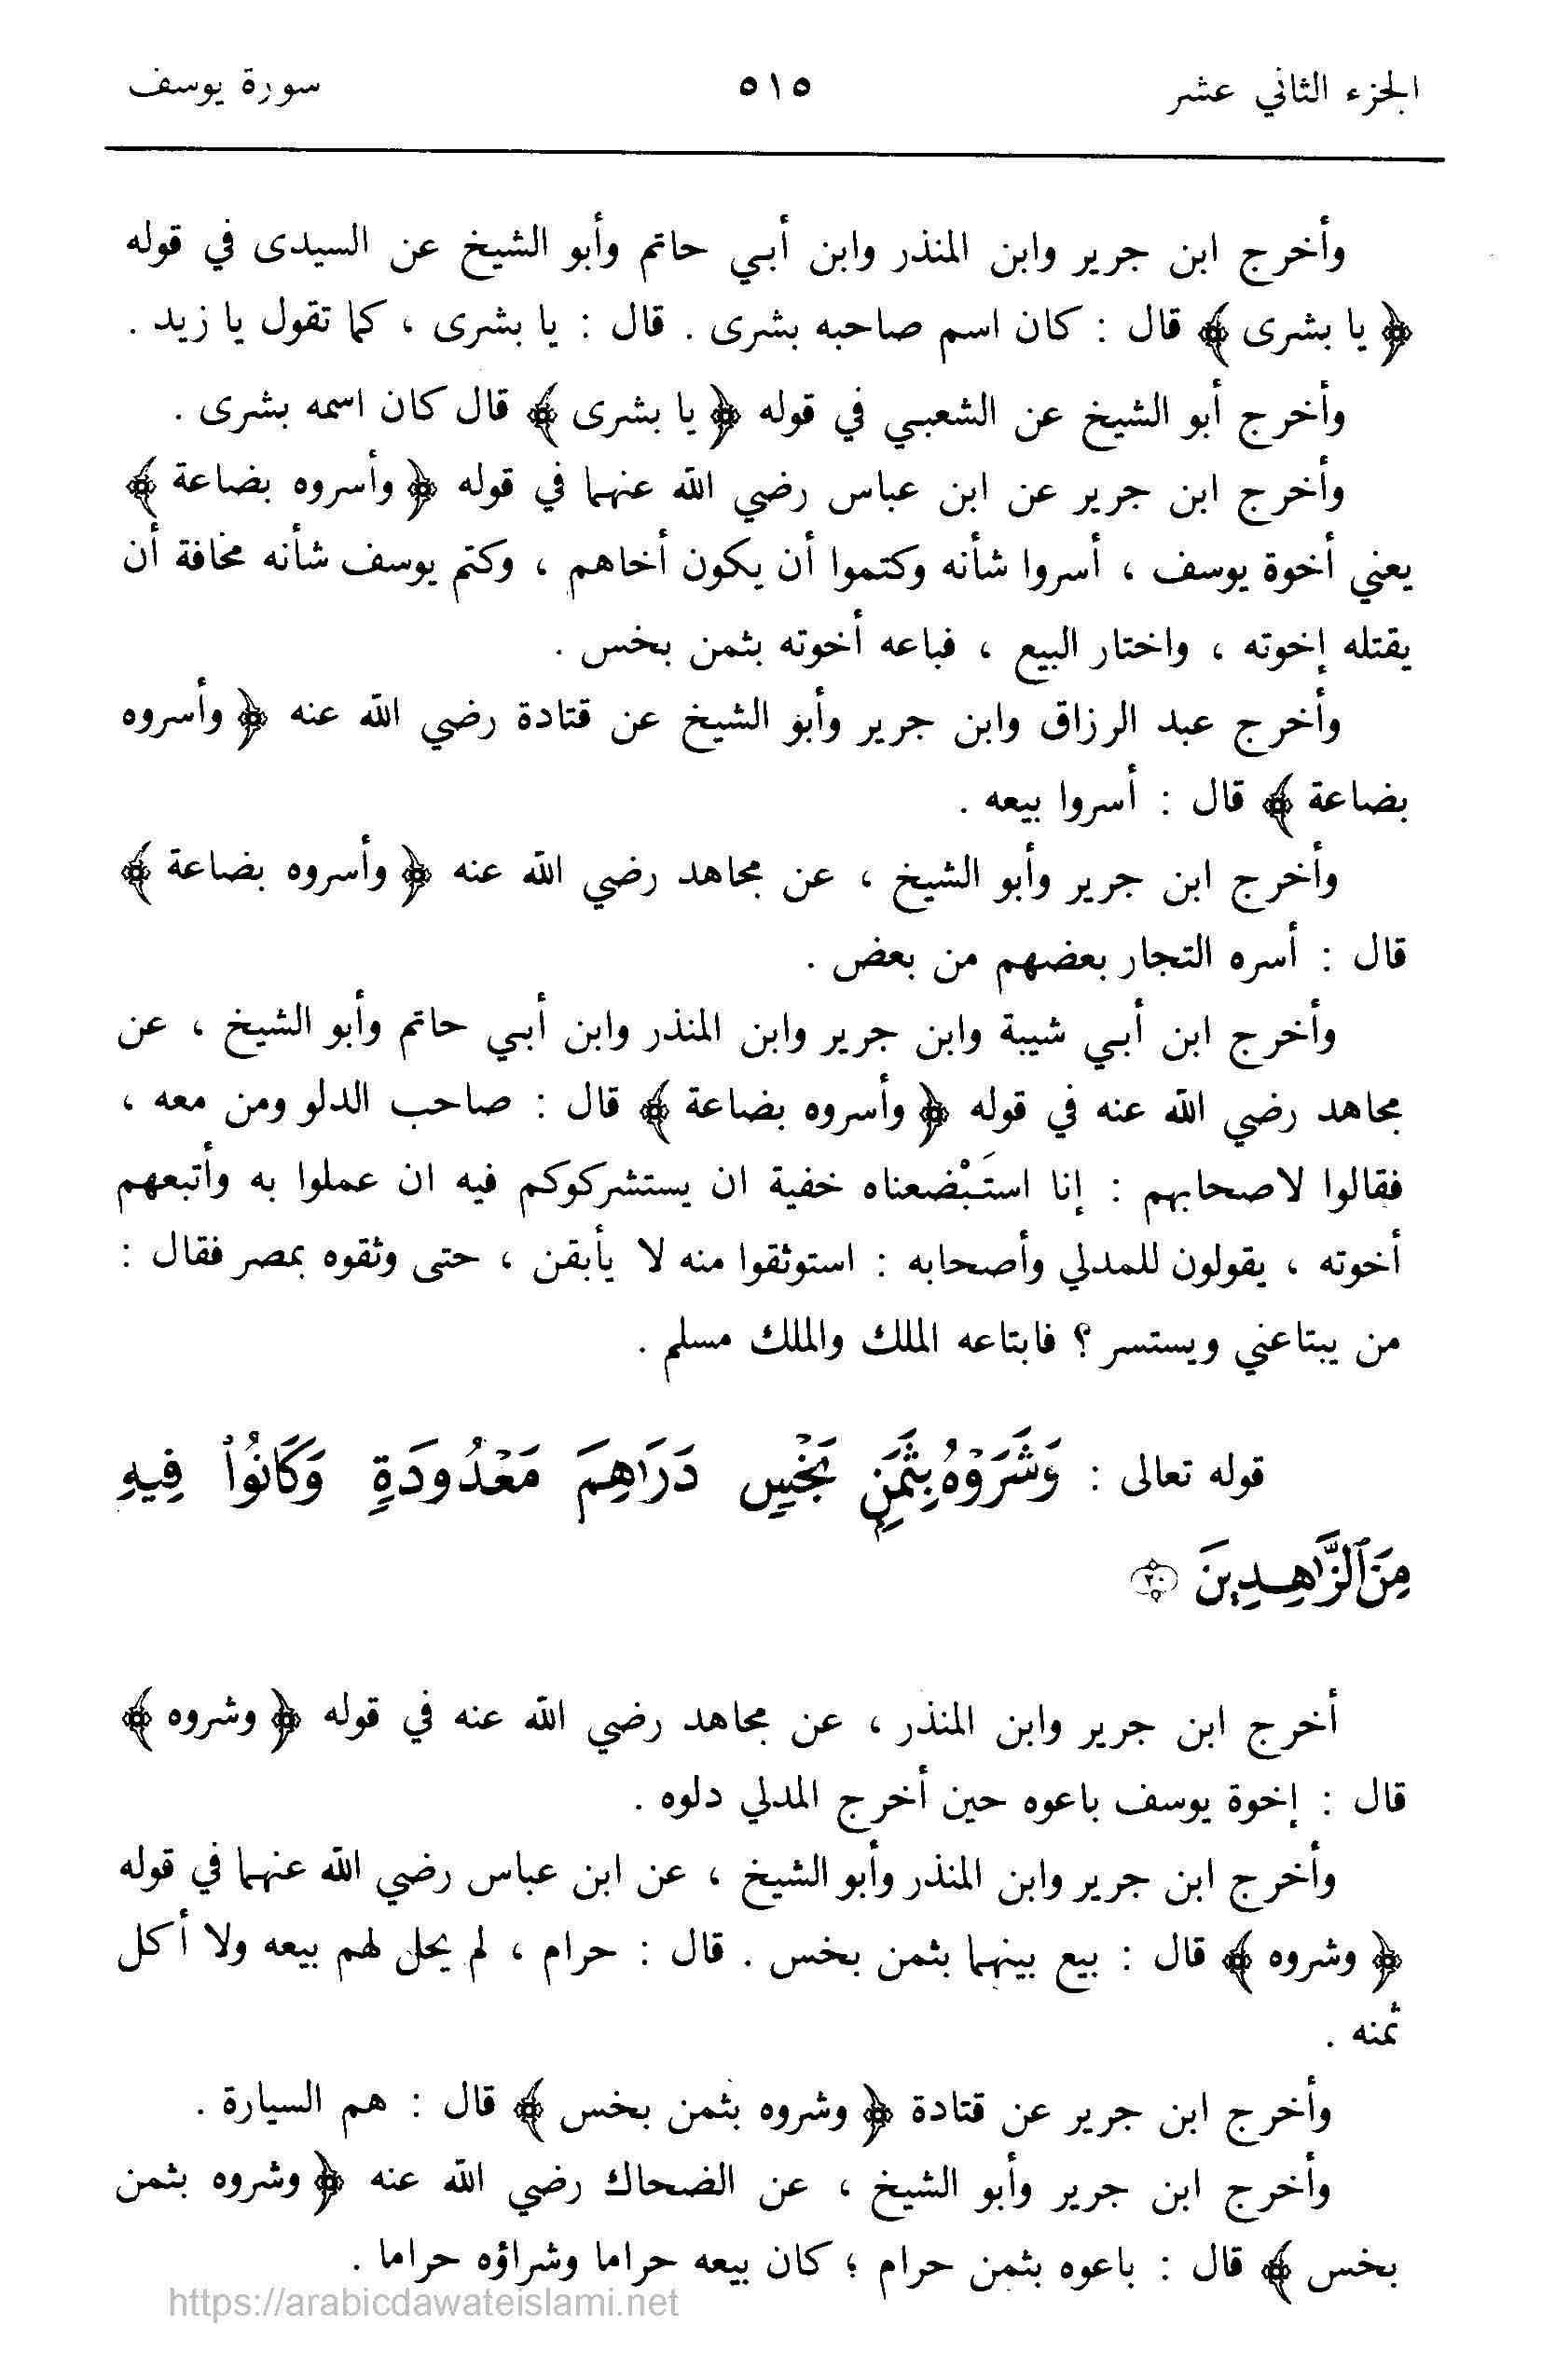 الجزء الثاني عشر ٥١٥ سورة يوسف
وأخرج ابن جرير وابن المنذر وابن أبـي حاتم وأبو الشيخ عن السيدى في قوله
﴿ يا بشرى ﴾ قال : كان اسم صاحبه بشرى . قال : يا بشرى ، كما تقول يا زيد .
وأخرج أبو الشيخ عن الشعبـي في قوله ﴿ يا بشرى ﴾ قال كان اسمه بشرى .
وأخرج ابن جرير عن ابن عباس رضي الله عنهما في قوله ﴿ وأسروه بضاعة ﴾
يعني أخوة يوسف ، أسروا شأنه وكتموا أن يكون أخاهم ، وكتم يوسف شأنه مخافة أن
يقتله إخوته ، واختار البيع ، فباعه أخوته بثمن بخس .
وأخرج عبد الرزاق وابن جرير وأبو الشيخ عن قتادة رضي الله عنه ﴿ وأسروه
بضاعة ﴾ قال : أسروا بيعه .
وأخرج ابن جرير وأبو الشيخ ، عن مجاهد رضي الله عنه ﴿ وأسروه بضاعة ﴾
قال : أسره التجار بعضهم من بعض .
وأخرج ابن أبـي شيبة وابن جرير وابن المنذر وابن أبـي حاتم وأبو الشيخ ، عن
مجاهد رضي الله عنه في قوله ﴿ وأسروه بضاعة ﴾ قال : صاحب الدلو ومن معه ،
فقالوا لاصحابهم : إنا استَبْضعناه خفية ان يستشركوكم فيه ان عملوا به وأتبعهم
أخوته ، يقولون للمدلي وأصحابه : استوثقوا منه لا يأبقن ، حتى وثقوه بمصر فقال :
من يبتاعني ويستسر ؟ فابتاعه الملك والملك مسلم .
قوله تعالى : وَشَرَوْهُ بِثَمَنٍۭ بَخْسٍ دَرَٰهِمَ مَعْدُودَةٍ وَكَانُوا۟ فِيهِ
مِنَ ٱلزَّٰهِدِينَ ٢٠
أخرج ابن جرير وابن المنذر ، عن مجاهد رضي الله عنه في قوله ﴿ وشروه ﴾
قال : إخوة يوسف باعوه حين أخرج المدلي دلوه .
وأخرج ابن جرير وابن المنذر وأبو الشيخ ، عن ابن عباس رضي الله عنهما في قوله
﴿ وشروه ﴾ قال : بيع بينهما بثمن بخس . قال : حرام ، لم يحل لهم بيعه ولا أكل
ثمنه .
وأخرج ابن جرير عن قتادة ﴿ وشروه بثمن بخس ﴾ قال : هم السيارة .
وأخرج ابن جرير وأبو الشيخ ، عن الضحاك رضي الله عنه ﴿ وشروه بثمن
بخس ﴾ قال : باعوه بثمن حرام ؛ كان بيعه حراما وشراؤه حراما .
https://arabicdawateislami.net